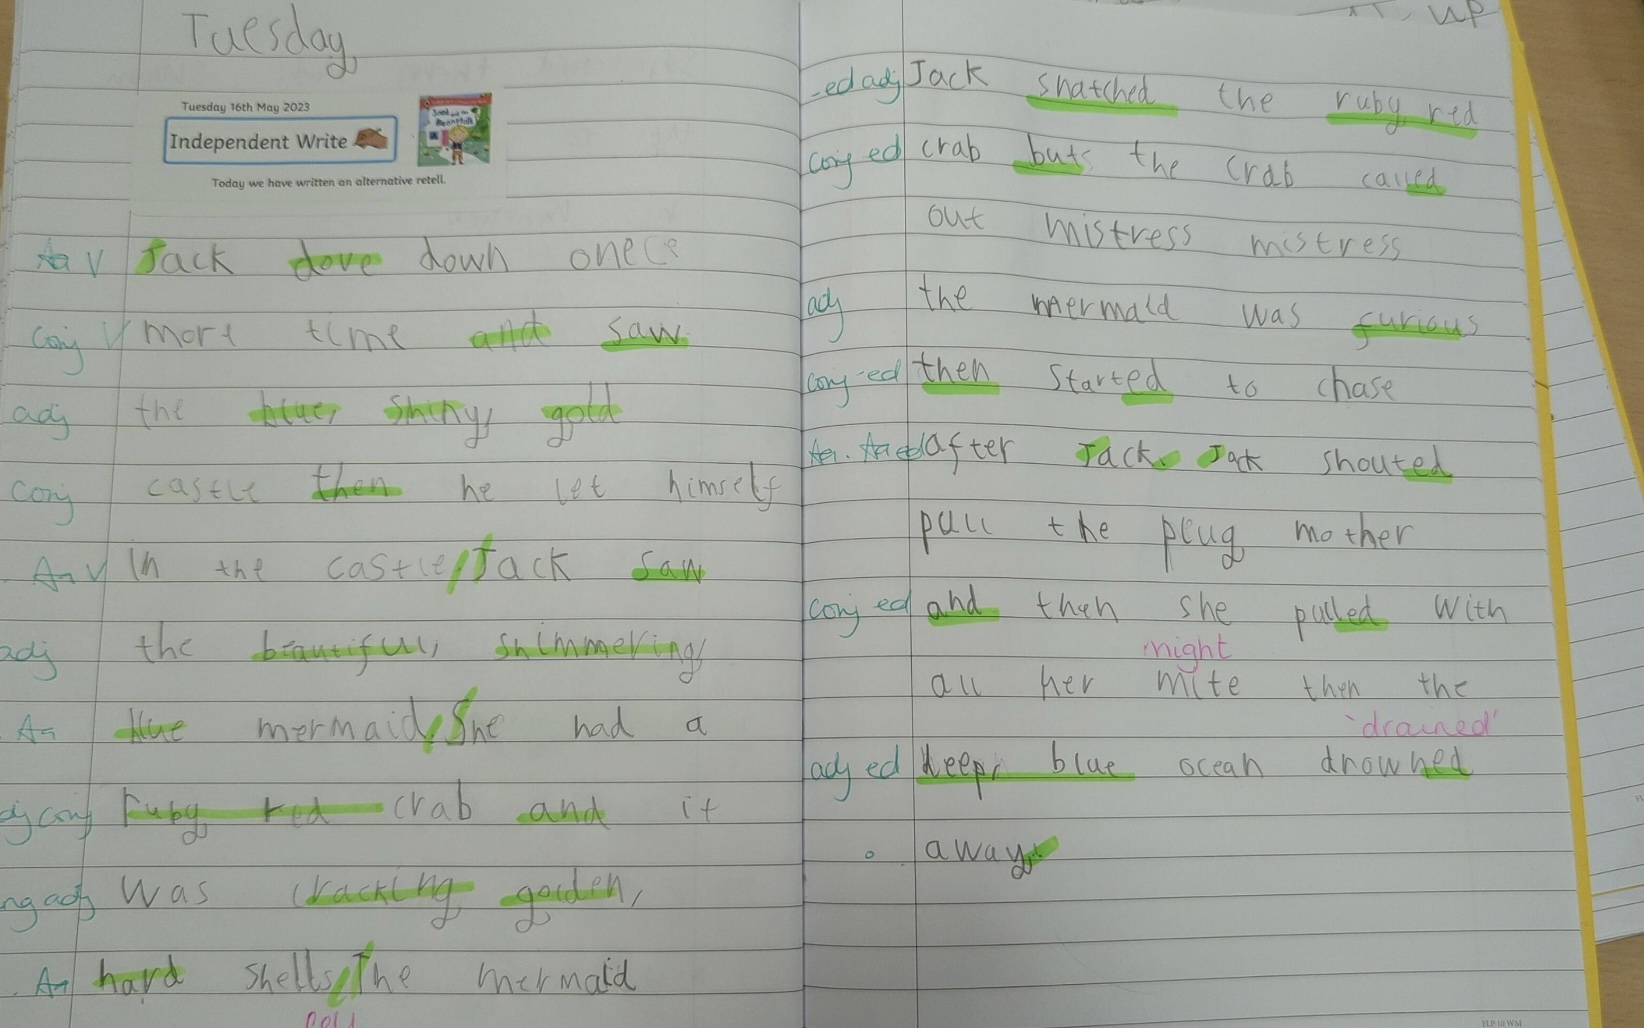 Tuesday
Tuesday 16th May 2023
Independent Write
Jack and the
Beanstalk
Today we have written an alternative retell.
Aa V Jack dove down onece
conj V more time and saw
adj the blue, shiny, gold
conj castle then he let himself
. Aa V in the castle. Jack saw
adj the beautiful, shimmering,
. Aa blue mermaid. She had a
adj conj ruby red crab and it
ing adj was cracking golden,
. Aa hard shells. The mermaid
up
-ed adj Jack snatched the ruby red
conj ed crab but the crab called
out mistress mistress
adj the mermaid was furious
conj -ed then started to chase
Aa . Aa ed after Jack. Jack shouted
pull the plug mother
conj ed and then she pulled with
might
all her mite then the
'drained'
adj ed deep, blue ocean drowned
. away.